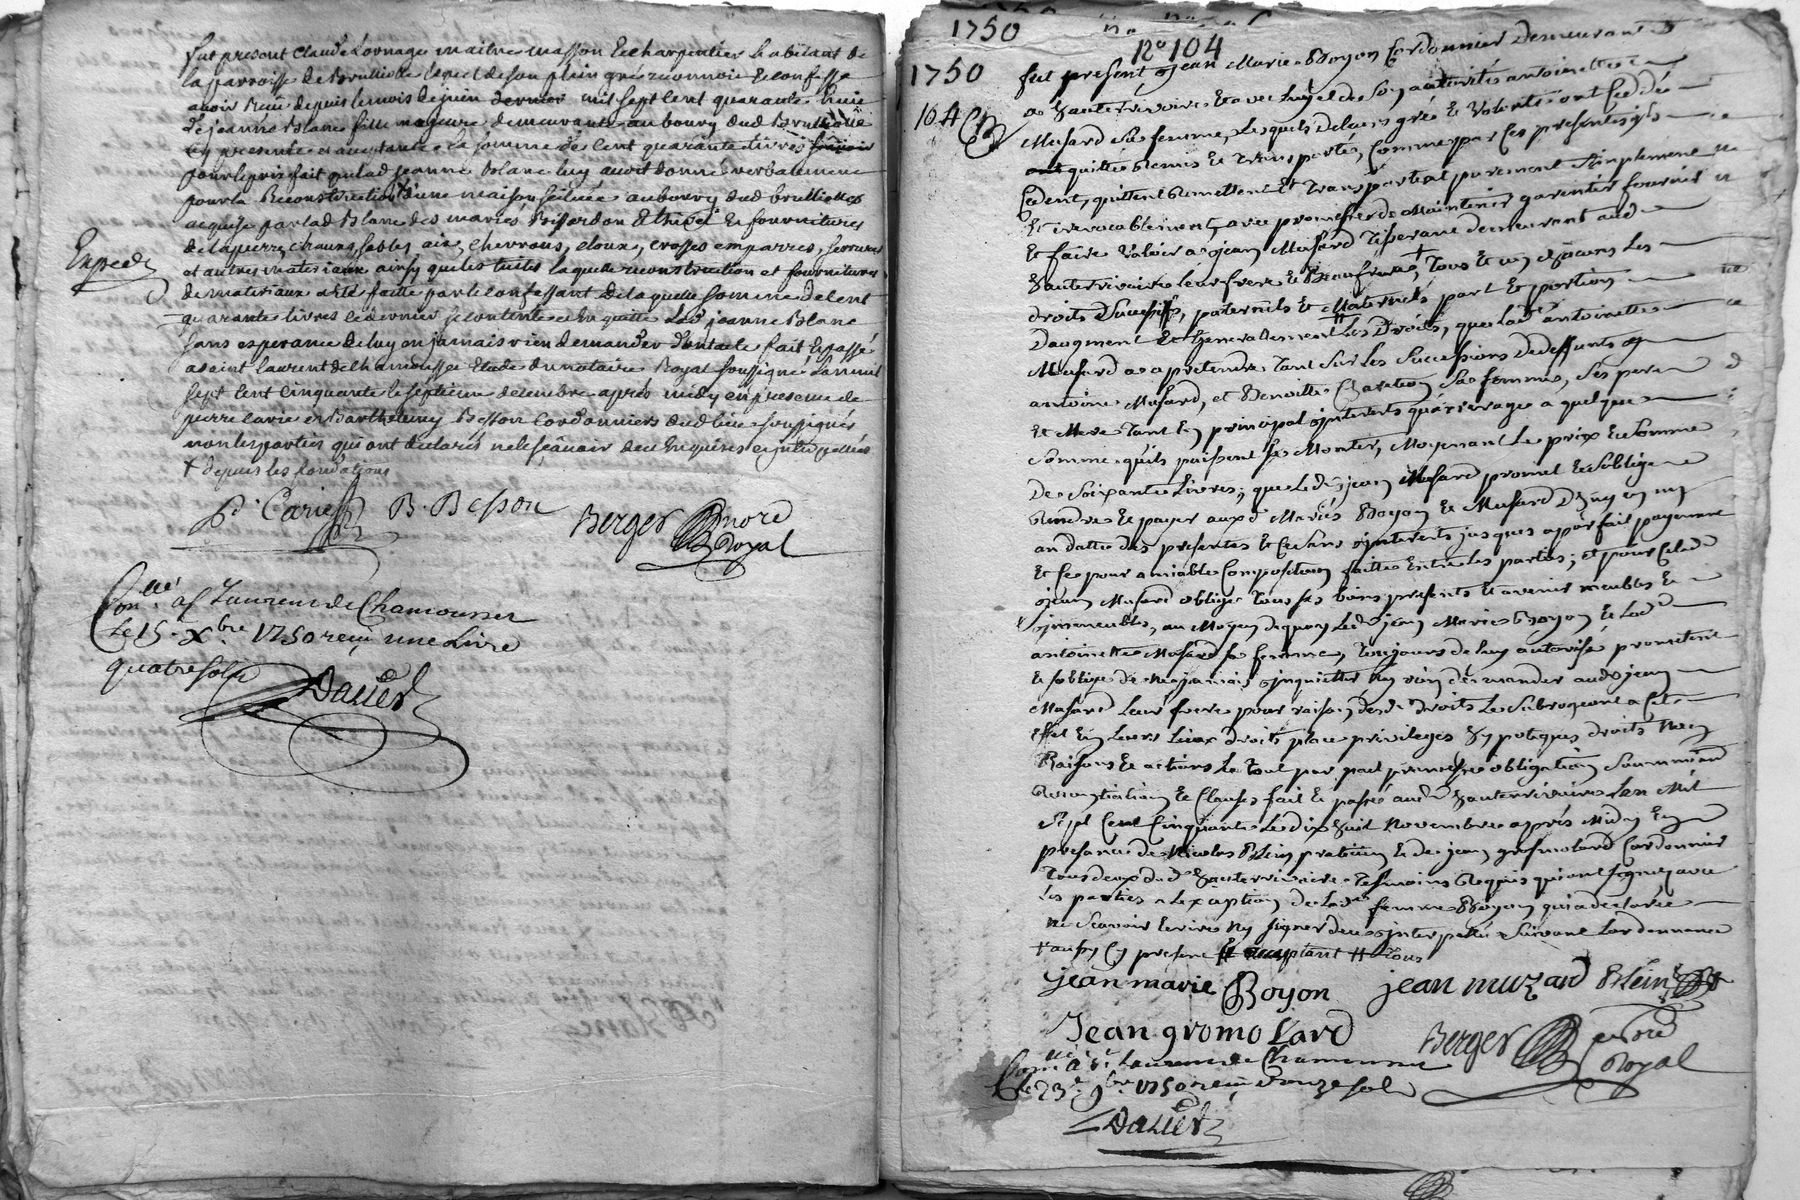 fut present Claude Lornage maitre masson & charpentier habitant de
la parroisse de Brullioles lequel de son plein gré reconnoit & confesse
avoir Reçu depuis le mois de juin dernier mil sept cent quarante huit
de jeanne Blanc fille majeure demeurante au bourg dud Brullioles
cy presente et acceptante la somme de Cent quarante livres
pour le prix fait que lad jeanne Blanc luy avoit donné verbalement
pour la Reconstruction d'une maison scituée au bourg dud brullioles
acquise par lad Blanc des mariés & fournitures
de la pierre, chaux, sable, ais, chevrons, cloux, crosses emparres, serrures
et autres materiaux ainsy que les tuiles laquelle reconstruction et fournitures
de materiaux a été faitte par le confessant de laquelle somme de Cent
quarante livres ce dernier se contente & en quitte lad jeanne Blanc
sans esperance de luy en jamais rien demander dont acte fait & passé
a saint laurent de chamousset Etude du notaire Royal soussigné l'an mil
sept cent cinquante le septieme decembre apres midy en presence de
pierre carie et Barthelemy Besson Cordonniers dud lieu soussignés
non les parties qui ont declaré ne le sçavoir de ce enquises & interpellées
+ depuis les fondations
Expedié
P. Carie B. Besson Berger nore
Royal
Con.llé a St Laurent de Chamousset
Le 15. Xbre 1750 reçu une Livre
quatre sols
Daviet
1750
No 104
1750
104
fut present Jean Marie Boyon Cordonnier Demeurant
a hauterivoire & avec luy et de son autorité antoinette
Musard sa femme, Lesquels de leurs grés & Volontés ont Cedé
quitté remis & transportés, Comme par Ces presentes ils
Cedent, quittent remettent Et transportent purement simplement
Et irrevocablement, avec promesse de Maintenir garentir fournir
Et faire Valoir a Jean Musard Tisserant demeurant aud
hauterivoire leur frere & Beaufrere, + Tous & un chacuns les
droits Successifs, paternels & Maternels part & portion
Daugment Et Generalement Les Droits, que lad antoinette
Musard a a pretendre tant sur Les Successions De deffunts
antoine Musard, et Benoitte sa femme, Ses pere
Et Mere Tant En principal interests qu'arrerages a quelque
Somme qu'ils puissent se Monter, Moyenant Le prix & Somme
De Soixante Livres; que Led jean Musard promet & s'oblige
rendre & payer auxd Mariés Boyon & Musard D'huy en
an datte des presentes & Ce sans interests jusques a parfait payement
Et Ce pour amiable Composition faitte Entre Les parties; et pour Ce led
jean Musard oblige Tous ses biens presents & avenir meubles &
immeubles, au Moyen de quoy Led jean Marie Boyon & Lad
antoinette Musard sa femme, Toujours de luy autorisé promettent
& s'oblige de Ne jamais inquietter Ny rien demander aud jean
Musard Leur frere pour raison desd droits Le Subrogeant a Cet
Effet En Leurs Lieux droits place privileges hypoteques droits Noms
Raisons & actions Le Tout par pact promesse obligation Soummission
Renontiation & Clauses fait & passé aud hauterivoire Lan Mil
Sept Cent Cinquante Le dix huit Novembre aprés Midy En
presance de Nicolas Blein praticien & de jean gromolard Cordonnier
Tous deux dud hauterivoire Tesmoins Requis qui ont signé avec
Les parties a Lexception de Lade femme Boyon qui a declaré
ne Scavoir Ecrire Ny signer de ce interpellé Suivant Lordonnance
+ aussy Cy present & acceptant # Tous
jean marie Boyon jean muzard Blein
Jean gromolard Berger nore
Royal
Con.llé a St Laurent de Chamousset
Le 23e 9bre 1750 reçu Douze sol
Daviet